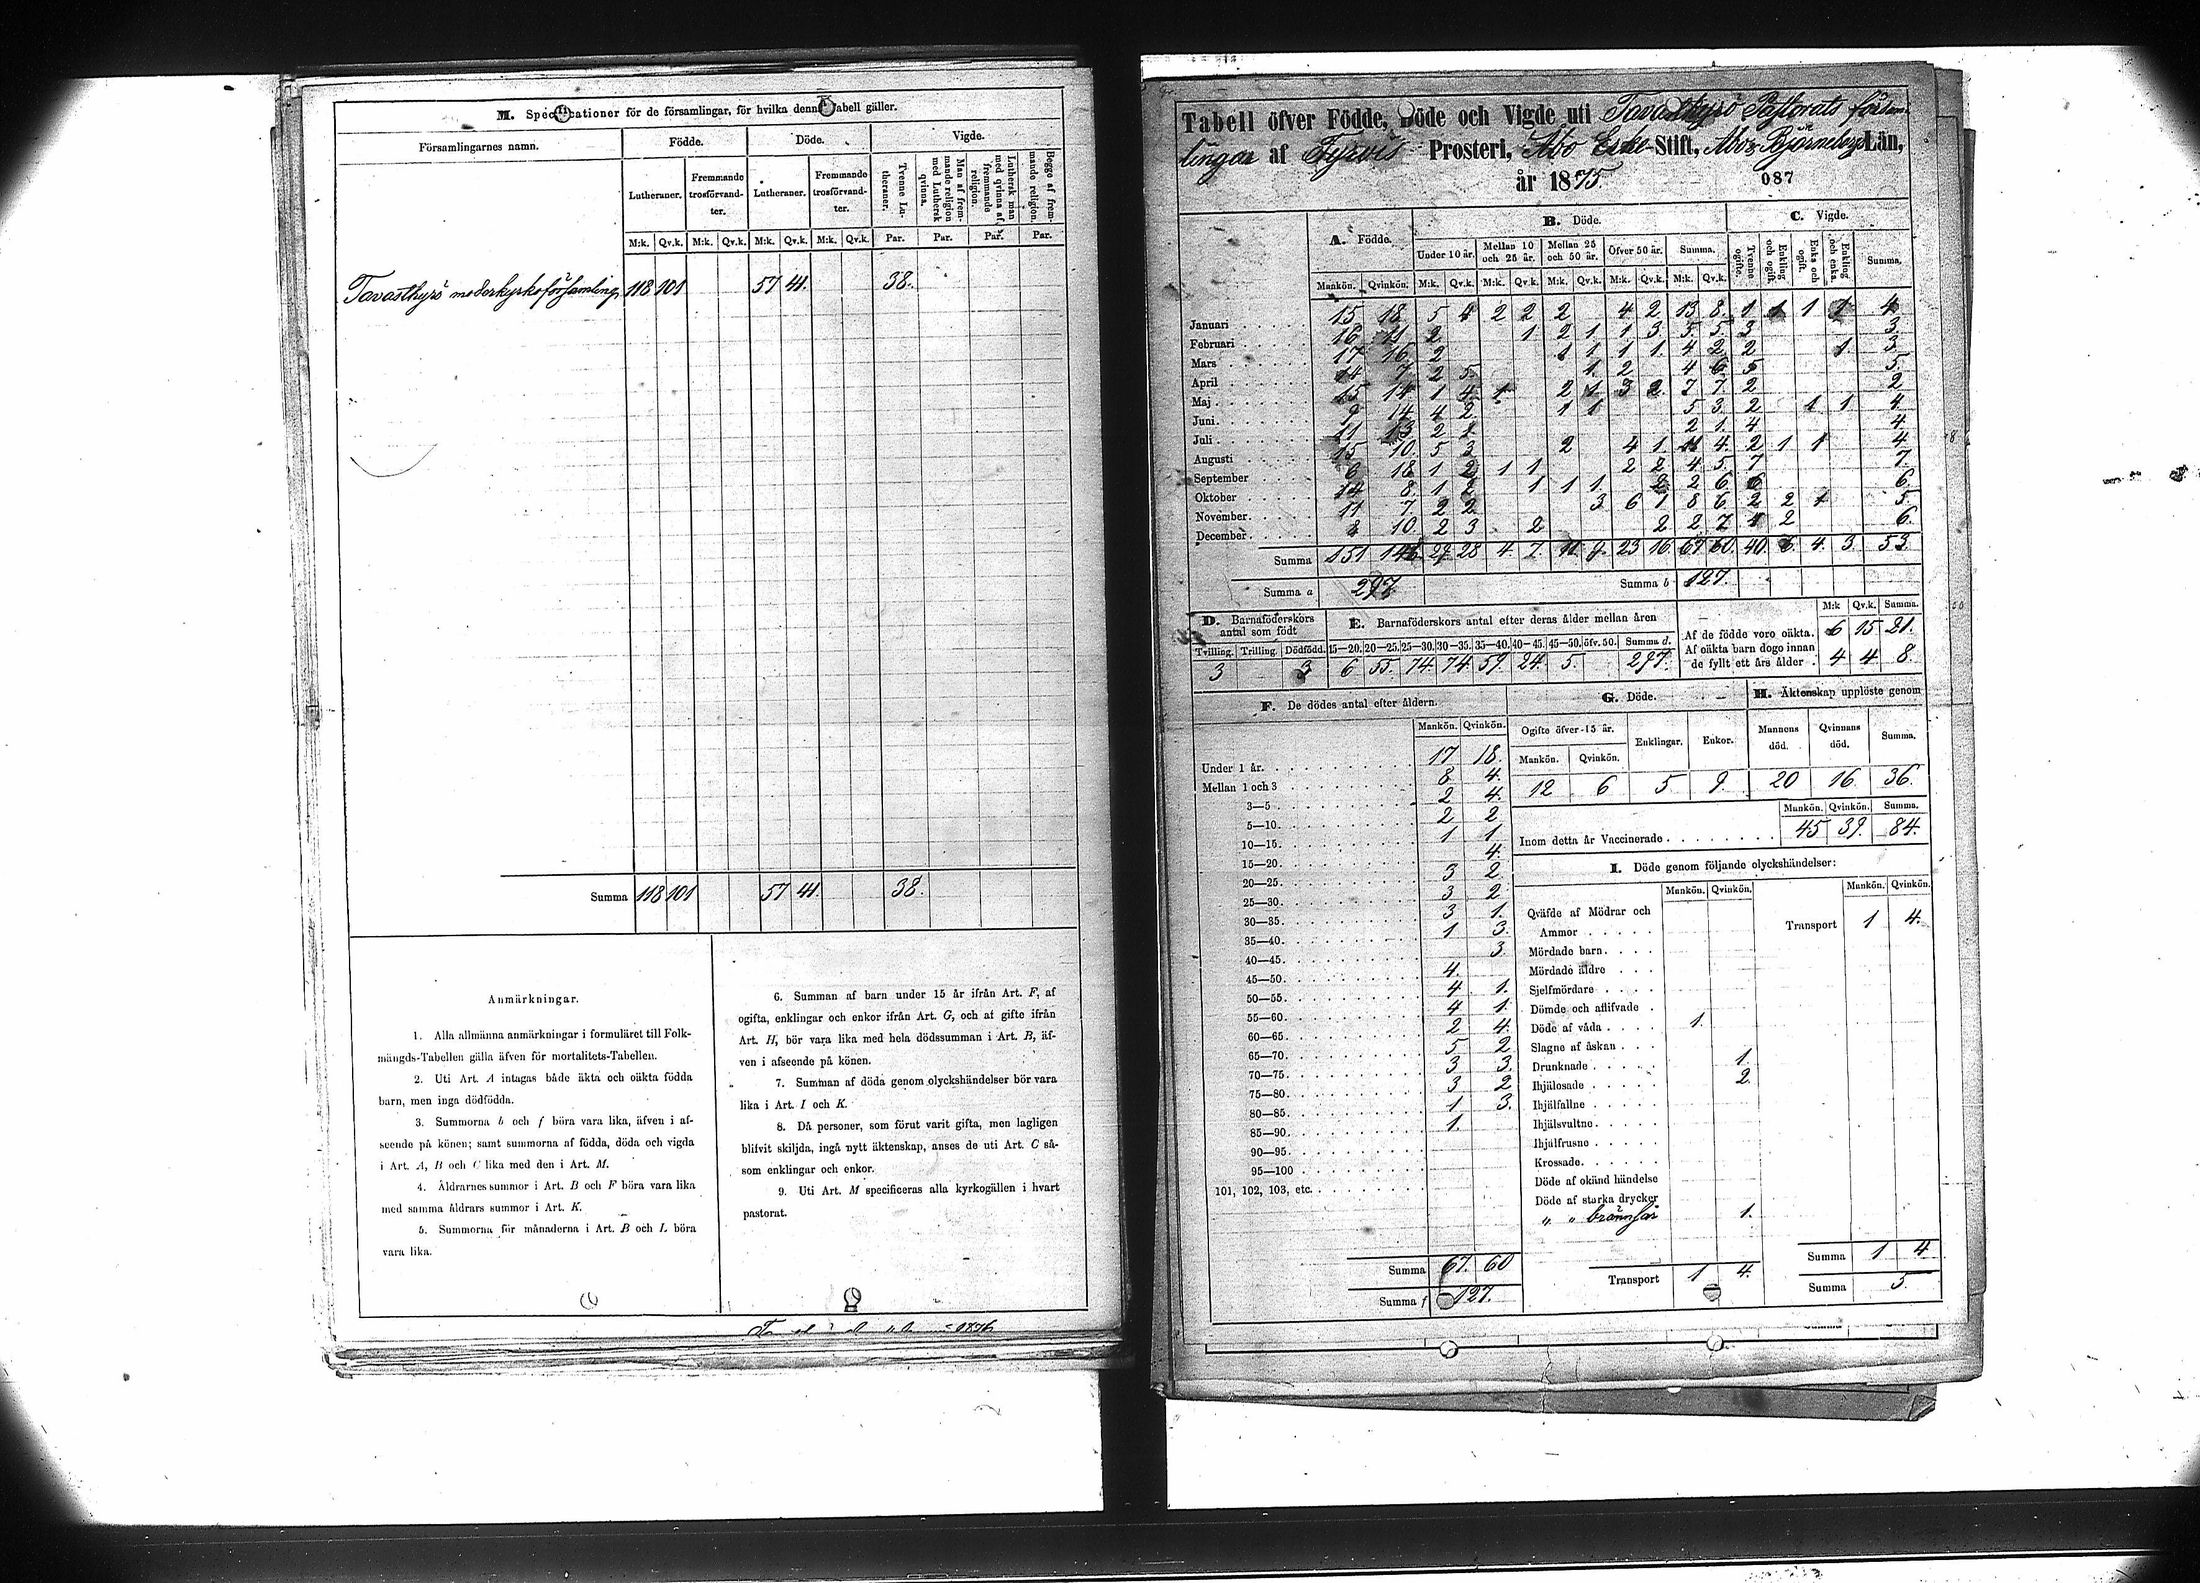 M. Specificationer för de församlingar, för hvilka denna Tabell gäller.
Församlingarnes namn. Födde. Döde. Vigde.
Lutheraner. Fremmande trosförvandter. Lutheraner. Fremmande trosförvandter. Tvenne Lutheraner. Man af fremmande religion med Luthersk qvinna. Luthersk man med qvinna af fremmande religion. Begge af fremmande religion.
M:k. Qv.k. M:k. Qv.k. M:k. Qv.k. M:k. Qv.k. Par. Par. Par. Par.
Tavastkyrö moderkyrkoförsamling 118 101 57 41. 38.
Summa 118 101 57 41. 38.
Anmärkningar.
1. Alla allmänna anmärkningar i formuläret till Folk-
mängds-Tabellen gälla äfven för mortalitets-Tabellen.
2. Uti Art. A intagas både äkta och oäkta födda
barn, men inga dödfödda.
3. Summorna b och f böra vara lika, äfven i af-
seende på könen; samt summorna af födda, döda och vigda
i Art. A, B och C lika med den i Art. M.
4. Åldrarnes summor i Art. B och F böra vara lika
med samma åldrars summor i Art. K.
5. Summorna för månaderna i Art. B och L böra
vara lika.
6. Summan af barn under 15 år ifrån Art. F, af
ogifta, enklingar och enkor ifrån Art. G, och af gifte ifrån
Art. H, bör vara lika med hela dödssumman i Art. B, äf-
ven i afseende på könen.
7. Summan af döda genom olyckshändelser bör vara
lika i Art. I och K.
8. Då personer, som förut varit gifta, men lagligen
blifvit skiljda, ingå nytt äktenskap, anses de uti Art. C så-
som enklingar och enkor.
9. Uti Art. M specificeras alla kyrkogällen i hvart
pastorat.
1876
Tabell öfver Födde, Döde och Vigde uti Tavastkyrö Pastorats försam-
lingar af Tyrvis Prosteri, Åbo Erke-Stift, Åbo-Björneborgs Län,
år 1875. 087
A. Födde. B. Döde. C. Vigde.
Under 10 år. Mellan 10 och 25 år. Mellan 25 och 50 år. Öfver 50 år. Summa. Tvenne ogifte. Enkling och ogift. Enka och ogift. Enkling och enka. Summa.
Mankön. Qvinkön. M:k. Qv.k. M:k. Qv.k. M:k. Qv.k. M:k. Qv.k. M:k. Qv.k.
Januari 15 18 5 4 2 2 2 4 2 13 8. 1 1 1 1 4
Februari 16 11 2 1 2 1 1 3 5. 5. 3 3.
Mars 17 16 2 1 1 1 1. 4 2 2 1. 3
April 14 7 2 5. 1. 2 4 6 5 5.
Maj 15 14 1 4 1 2 1 3 2. 7 7. 2 2
Juni 9 14 4 2 1 1 5 3. 2 1 1 4
Juli 11 13 2 1 2 1. 4 4
Augusti 15 10. 5 3 2 4 1. 11 4. 2 1 1 4.
September 6 18 1 2 1 1 2 2 4 5. 7 7.
Oktober 14 8. 1 2 1 1 1. 2 2 6 6 6.
November 11 7. 2 2 3 6 1 8 6 2 2 1 5.
December 8 10. 2 3 2 2 2. 7 1 2 6.
Summa 151 146 29 28 4. 7. 11 9. 23 16 67 60. 40. 6. 4. 3. 53.
Summa a 297 Summa b 127.
D. Barnaföderskors antal som födt
E. Barnaföderskors antal efter deras ålder mellan åren
M:k Qv.k. Summa.
Tvilling. Trilling. Dödfödd. 15—20. 20—25. 25—30. 30—35. 35—40. 40—45. 45—50. öfv. 50. Summa d.
3 3 6 55. 74. 74. 59. 24. 5. 297.
Af de födde voro oäkta. 6 15 21.
Af oäkta barn dogo innan
de fyllt ett års ålder . 4 4 8.
F. De dödes antal efter åldern.
Mankön. Qvinkön.
Under 1 år. 17 18.
Mellan 1 och 3 8 4.
3—5 2 4.
5—10. 2 2
10—15. 1 1.
15—20. 4.
20—25. 3 2
25—30. 3 2.
30—35. 3 1.
35—40. 1 3.
40—45. 3
45—50. 4.
50—55. 4 1.
55—60. 4 1.
60—65. 2 4.
65—70. 5 2
70—75. 3 3.
75—80. 3 2
80—85. 1 3.
85—90. 1.
90—95.
95—100
101, 102, 103, etc.
Summa 67. 60
Summa f 127.
G. Döde.
Ogifte öfver 15 år. Enklingar. Enkor.
Mankön. Qvinkön.
12 6 5 9.
H. Äktenskap upplöste genom
Mannens död. Qvinnans död. Summa.
20 16 36.
Mankön. Qvinkön. Summa.
Inom detta år Vaccinerade 45 39. 84.
I. Döde genom följande olyckshändelser:
Mankön. Qvinkön. Mankön. Qvinkön.
Qväfde af Mödrar och
Ammor
Mördade barn.
Mördade äldre
Sjelfmördare
Dömde och aflifvade
Döde af våda 1.
Slagne af åskan
Drunknade 1.
Ihjälosade 2.
Ihjälfallne
Ihjälsvultne
Ihjälfrusne
Krossade.
Döde af okänd händelse
Döde af starka drycker
" " brännsår 1.
Transport 1 4.
Transport 1 4.
Summa 1 4
Summa 5.